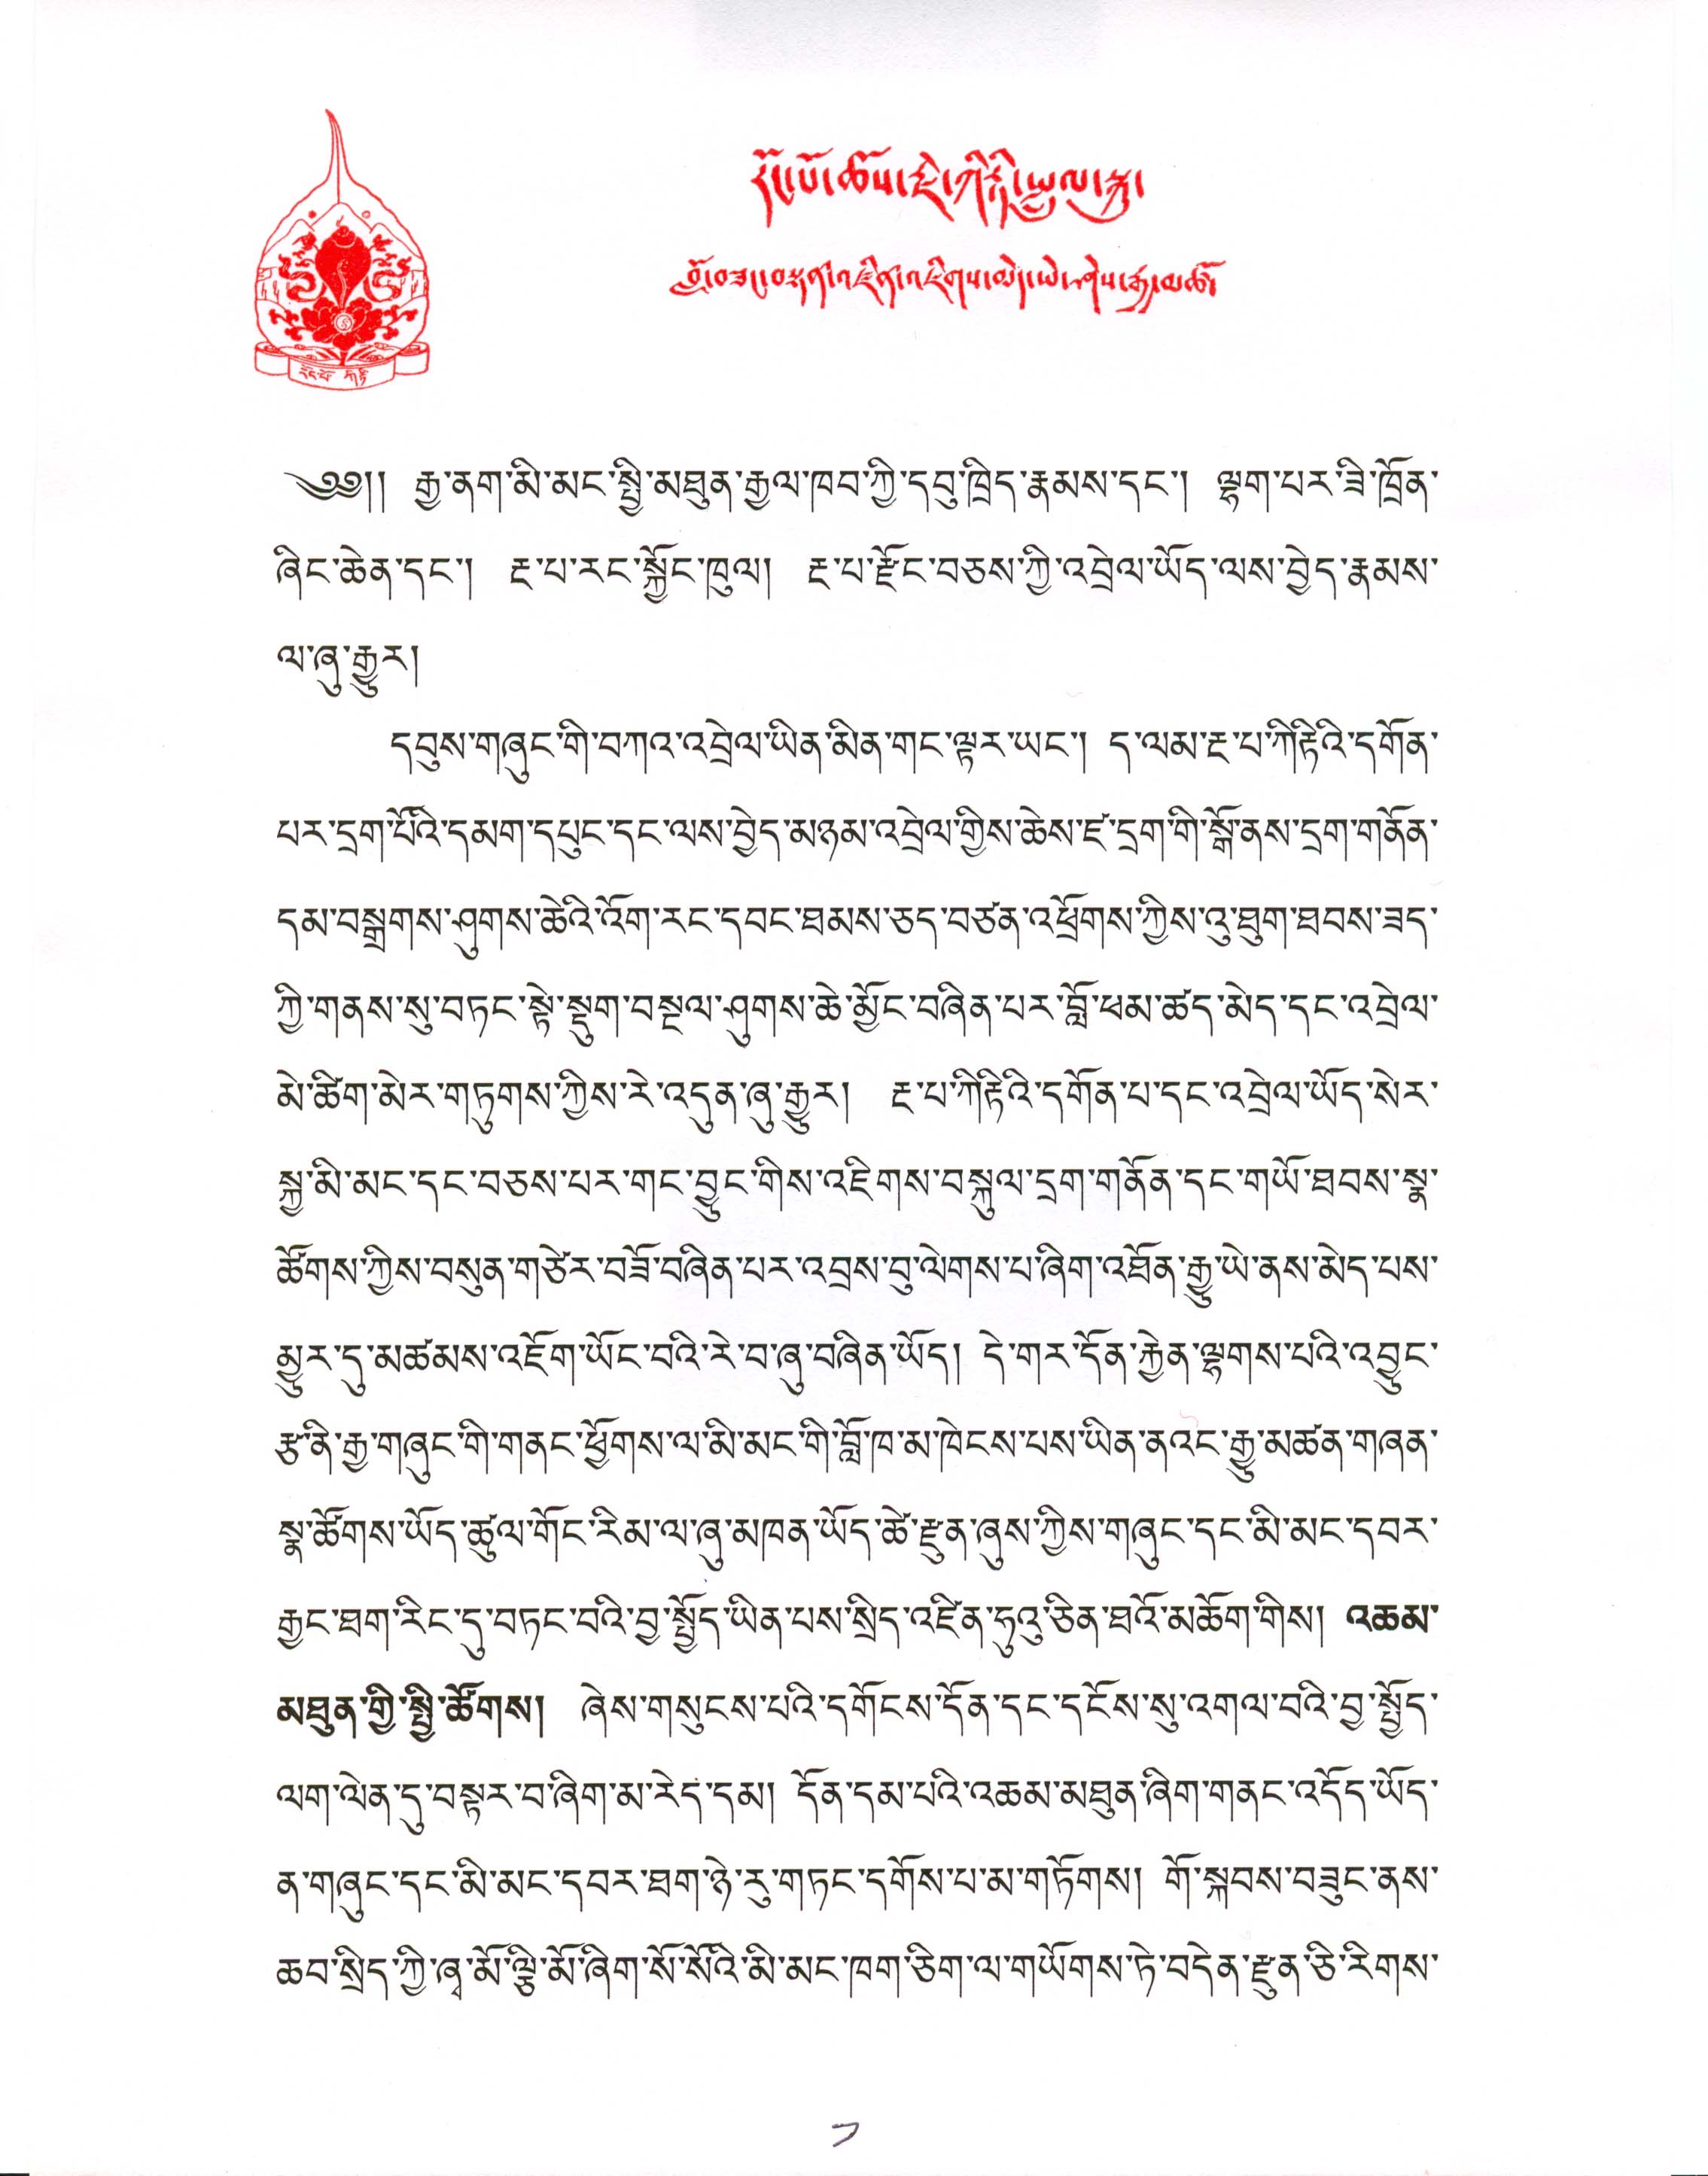 རོང་པོ་ཆོས་རྗེ་ཀིརྟི་སྤྲུལ་སྐུ།
བློ་བཟང་བསྟན་འཛིན་འཇིགས་མེད་ཡེ་ཤེས་རྒྱ་མཚོ
རོང་པོ་ ཀིརྟི
༄༅།། རྒྱ་ནག་མི་མང་སྤྱི་མཐུན་རྒྱལ་ཁབ་ཀྱི་དབུ་ཁྲིད་རྣམས་དང་། ལྷག་པར་ཟི་ཁྲོན་
ཞིང་ཆེན་དང་། རྔ་པ་རང་སྐྱོང་ཁུལ། རྔ་པ་རྫོང་བཅས་ཀྱི་འབྲེལ་ཡོད་ལས་བྱེད་རྣམས་
ལ་ཞུ་རྒྱུར།
དབུས་གཞུང་གི་བཀའ་འབྲེལ་ཡིན་མིན་གང་ལྟར་ཡང་། ད་ལམ་རྔ་པ་ཀིརྟིའི་དགོན་
པར་དྲག་པོའི་དམག་དཔུང་དང་ལས་བྱེད་མཉམ་འབྲེལ་གྱིས་ཆེས་ཛ་དྲག་གི་སྒོ་ནས་དྲག་གནོན་
དམ་བསྒྲགས་ཤུགས་ཆེའི་འོག་རང་དབང་ཐམས་ཅད་བཙན་འཕྲོགས་ཀྱིས་འུ་ཐུག་ཐབས་ཟད་
ཀྱི་གནས་སུ་བཏང་སྟེ་སྡུག་བསྔལ་ཤུགས་ཆེ་མྱོང་བཞིན་པར་བློ་ཕམ་ཚད་མེད་དང་འབྲེལ་
མེ་ཚིག་མེར་གཏུགས་ཀྱིས་རེ་འདུན་ཞུ་རྒྱུར། རྔ་པ་ཀིརྟིའི་དགོན་པ་དང་འབྲེལ་ཡོད་སེར་
སྐྱ་མི་མང་དང་བཅས་པར་གང་བྱུང་གིས་འཇིགས་བསྐུལ་དྲག་གནོན་དང་གཡོ་ཐབས་སྣ་
ཚོགས་ཀྱིས་བསུན་གཙེར་བཟོ་བཞིན་པར་འབྲས་བུ་ལེགས་པ་ཞིག་འཐོན་རྒྱུ་ཡེ་ནས་མེད་པས་
མྱུར་དུ་མཚམས་འཇོག་ཡོང་བའི་རེ་བ་ཞུ་བཞིན་ཡོད། དེ་གར་དོན་རྐྱེན་ལྷགས་པའི་འབྱུང་
རྩ་ནི་རྒྱ་གཞུང་གི་གནང་ཕྱོགས་ལ་མི་མང་གི་བློ་ཁ་མ་ཁེངས་པས་ཡིན་ནའང་རྒྱུ་མཚན་གཞན་
སྣ་ཚོགས་ཡོད་ཚུལ་གོང་རིམ་ལ་ཞུ་མཁན་ཡོད་ཚེ་རྫུན་ཞུས་ཀྱིས་གཞུང་དང་མི་མང་དབར་
རྒྱང་ཐག་རིང་དུ་བཏང་བའི་བྱ་སྤྱོད་ཡིན་པས་སྲིད་འཛིན་ཧུའུ་ཅིན་ཐའོ་མཆོག་གིས། འཆམ་
མཐུན་གྱི་སྤྱི་ཚོགས། ཞེས་གསུངས་པའི་དགོངས་དོན་དང་དངོས་སུ་འགལ་བའི་བྱ་སྤྱོད་
ལག་ལེན་དུ་བསྟར་བ་ཞིག་མ་རེད་དམ། དོན་དམ་པའི་འཆམ་མཐུན་ཞིག་གནང་འདོད་ཡོད་
ན་གཞུང་དང་མི་མང་དབར་ཐག་ཉེ་རུ་གཏང་དགོས་པ་མ་གཏོགས། གོ་སྐབས་བཟུང་ནས་
ཆབ་སྲིད་ཀྱི་ཞྭ་མོ་ལྕི་མོ་ཞིག་སོ་སོའི་མི་མང་ཁག་ཅིག་ལ་གཡོགས་ཏེ་བདེན་རྫུན་ཅི་རིགས་
༡